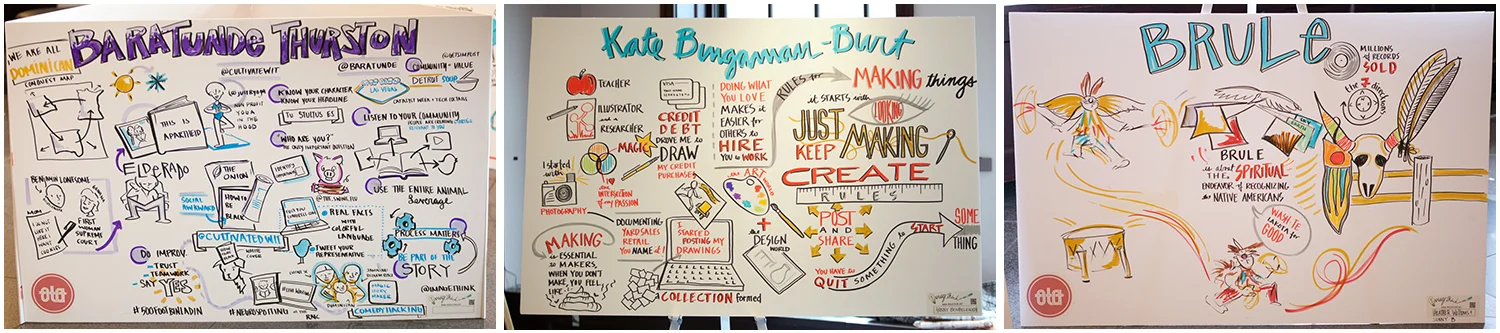 WE ARE ALL
DOMINICAN
CONQUEST MAP
BARATUNDE THURSTON
@CULTIVATEWIT
@BARATUNDE
COMMUNITY = VALUE
DETROIT SOUP
LAS VEGAS
CATALYST WEEK + TECH COCKTAIL
KNOW YOUR CHARACTER
KNOW YOUR HEADLINE
TU STULTUS ES
NON PROFIT
YOGA IN
THE HOOD
THIS IS
APARTHEID
LISTEN TO YOUR COMMUNITY
WHO ARE YOU?
THE ONLY IMPORTANT QUESTION
EL DORADO
THE
ONION
HOW TO
BE
BLACK
SOCIAL
AWKWARD
BENJAMIN LONESOME
MOM
FIRST
WOMAN
SUPREME
COURT
USE THE ENTIRE ANIMAL
leverage
REAL FACTS
WITH
COLORFUL
LANGUAGE
TWEET YOUR
REPRESENTATIVE
PROCESS MATTERS
BE PART OF THE
STORY
@CULTIVATEDWIT
DO IMPROV.
- TRUST
- TEAMWORK
SAY YES
DOMINICAN
COMEDY HACKING
@IMAGETHINK
#500FOOTRINLADIN
#NEGROSPOTTING
Kate Bingaman-Burt
TEACHER
ILLUSTRATOR
and a
RESEARCHER
VISA
CREDIT
DEBT
DROVE ME to
DRAW
MY CREDIT
PURCHASES
MAGIC
I started
with
PHOTOGRAPHY
the
INTERSECTION
of my PASSION
DOING WHAT
YOU LOVE
MAKES it
EASIER for
OTHERS to
HIRE
YOU to WORK
RULES for
MAKING things
it STARTS with
LOOKING
JUST
KEEP MAKING
CREATE
RULES
the ART
+
the
DESIGN
WORLD
POST
AND
SHARE
SOME
THING
START
YOU HAVE to
QUIT SOMETHING to
MAKING
is ESSENTIAL
to MAKERS.
WHEN YOU DON'T
MAKE, YOU FEEL
LIKE
DOCUMENTING
YARD SALES
RETAIL
YOU NAME it!
I
STARTED
POSTING MY
DRAWINGS
A COLLECTION formed
BRULE
MILLIONS
of RECORDS
SOLD
the 7 directions
BRULE
is about
THE SPIRITUAL
ENDEAVOR of RECOGNIZING
the NATIVE AMERICANS
WASH TE
LAKOTA for
GOOD